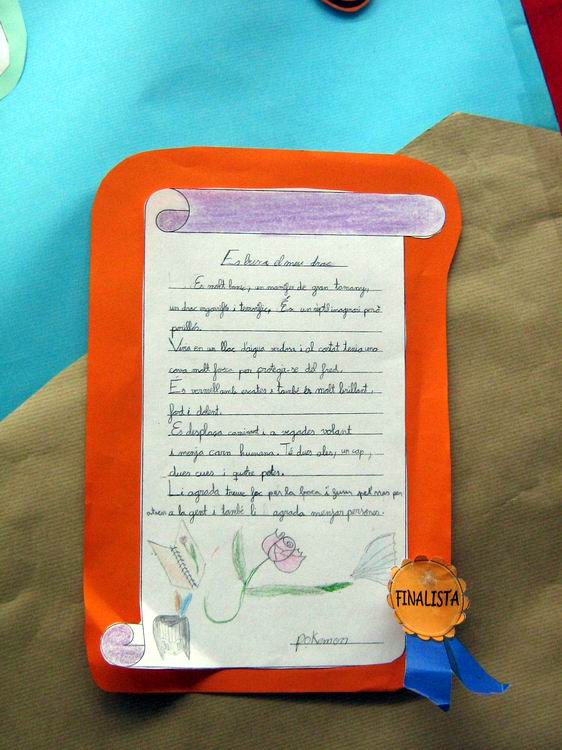 Es busca el meu drac
Es molt bonic, un monstre de gran tamany,
un drac organific i terrorific, És un rèptil imaginari però
perillós.
Viu en un lloc d'aigua verdosa i al costat tenia una
cova molt fosca per protegir-se del fred.
És vermell amb escates i també es molt brillant,
fort i dolent.
Es desplaça caminant i a vegades volant
i menja carn humana. Té dues ales, un cap,
dues cues i quatre potes.
Li agrada treure foc per la boca i fums pel nas per
atacar a la gent i també li agrada menjar persones.
pokemon
FINALISTA